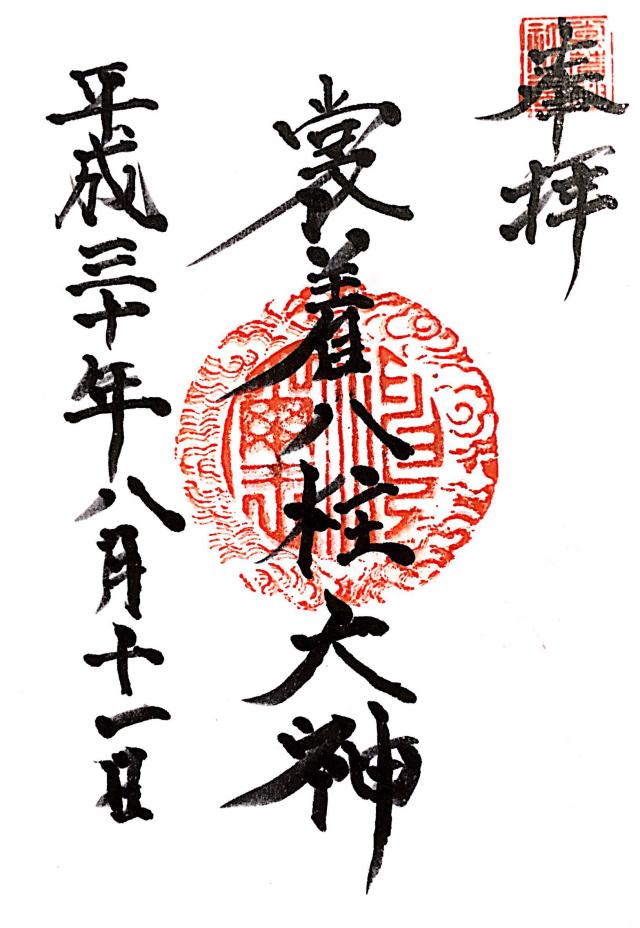 奉拝
裳着八柱大神
平成三十年八月十一日